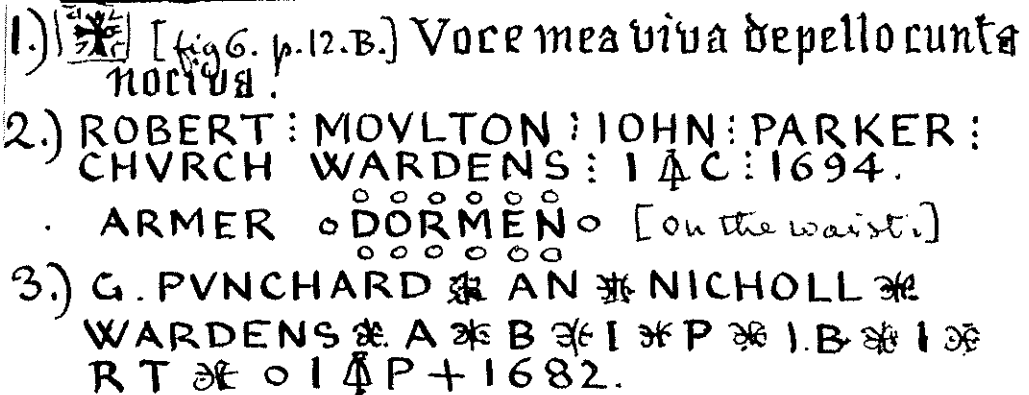 1.) [fig 6. p. 12. B.] Voce mea viva depello cunta
nociva !
2.) ROBERT ⁝ MOVLTON ⁝ IOHN ⁝ PARKER ⁝
CHVRCH WARDENS ⁝ I C ⁝ 1694.
ARMER DORMEN [on the waist.]
3.) G. PVNCHARD AN NICHOLL
WARDENS A B I P I.B I
R T O I P + 1682.